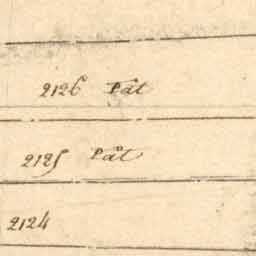 2126 Påt
2125 Påt
2124